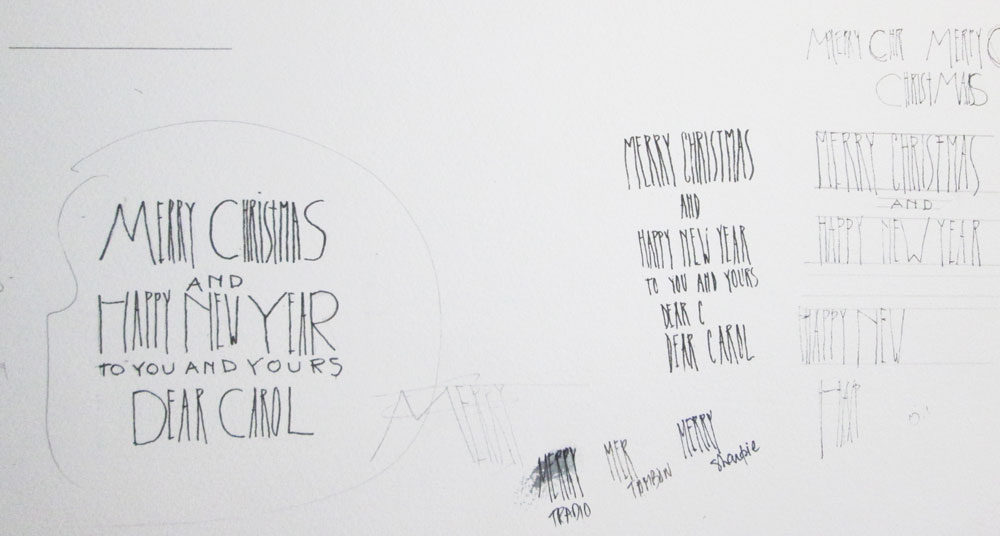 MERRY CHRISTMAS
AND
HAPPY NEW YEAR
TO YOU AND YOURS
DEAR CAROL
MERRY
MERRY CHRISTMAS
AND
HAPPY NEW YEAR
TO YOU AND YOURS
DEAR C
DEAR CAROL
MERRY
TRADIO
MER
TOMBOW
MERRY
Sharpie
MERRY CHR MERRY C
CHRISTMAS
MERRY CHRISTMAS
AND
HAPPY NEW YEAR
HAPPY NEW
HAP